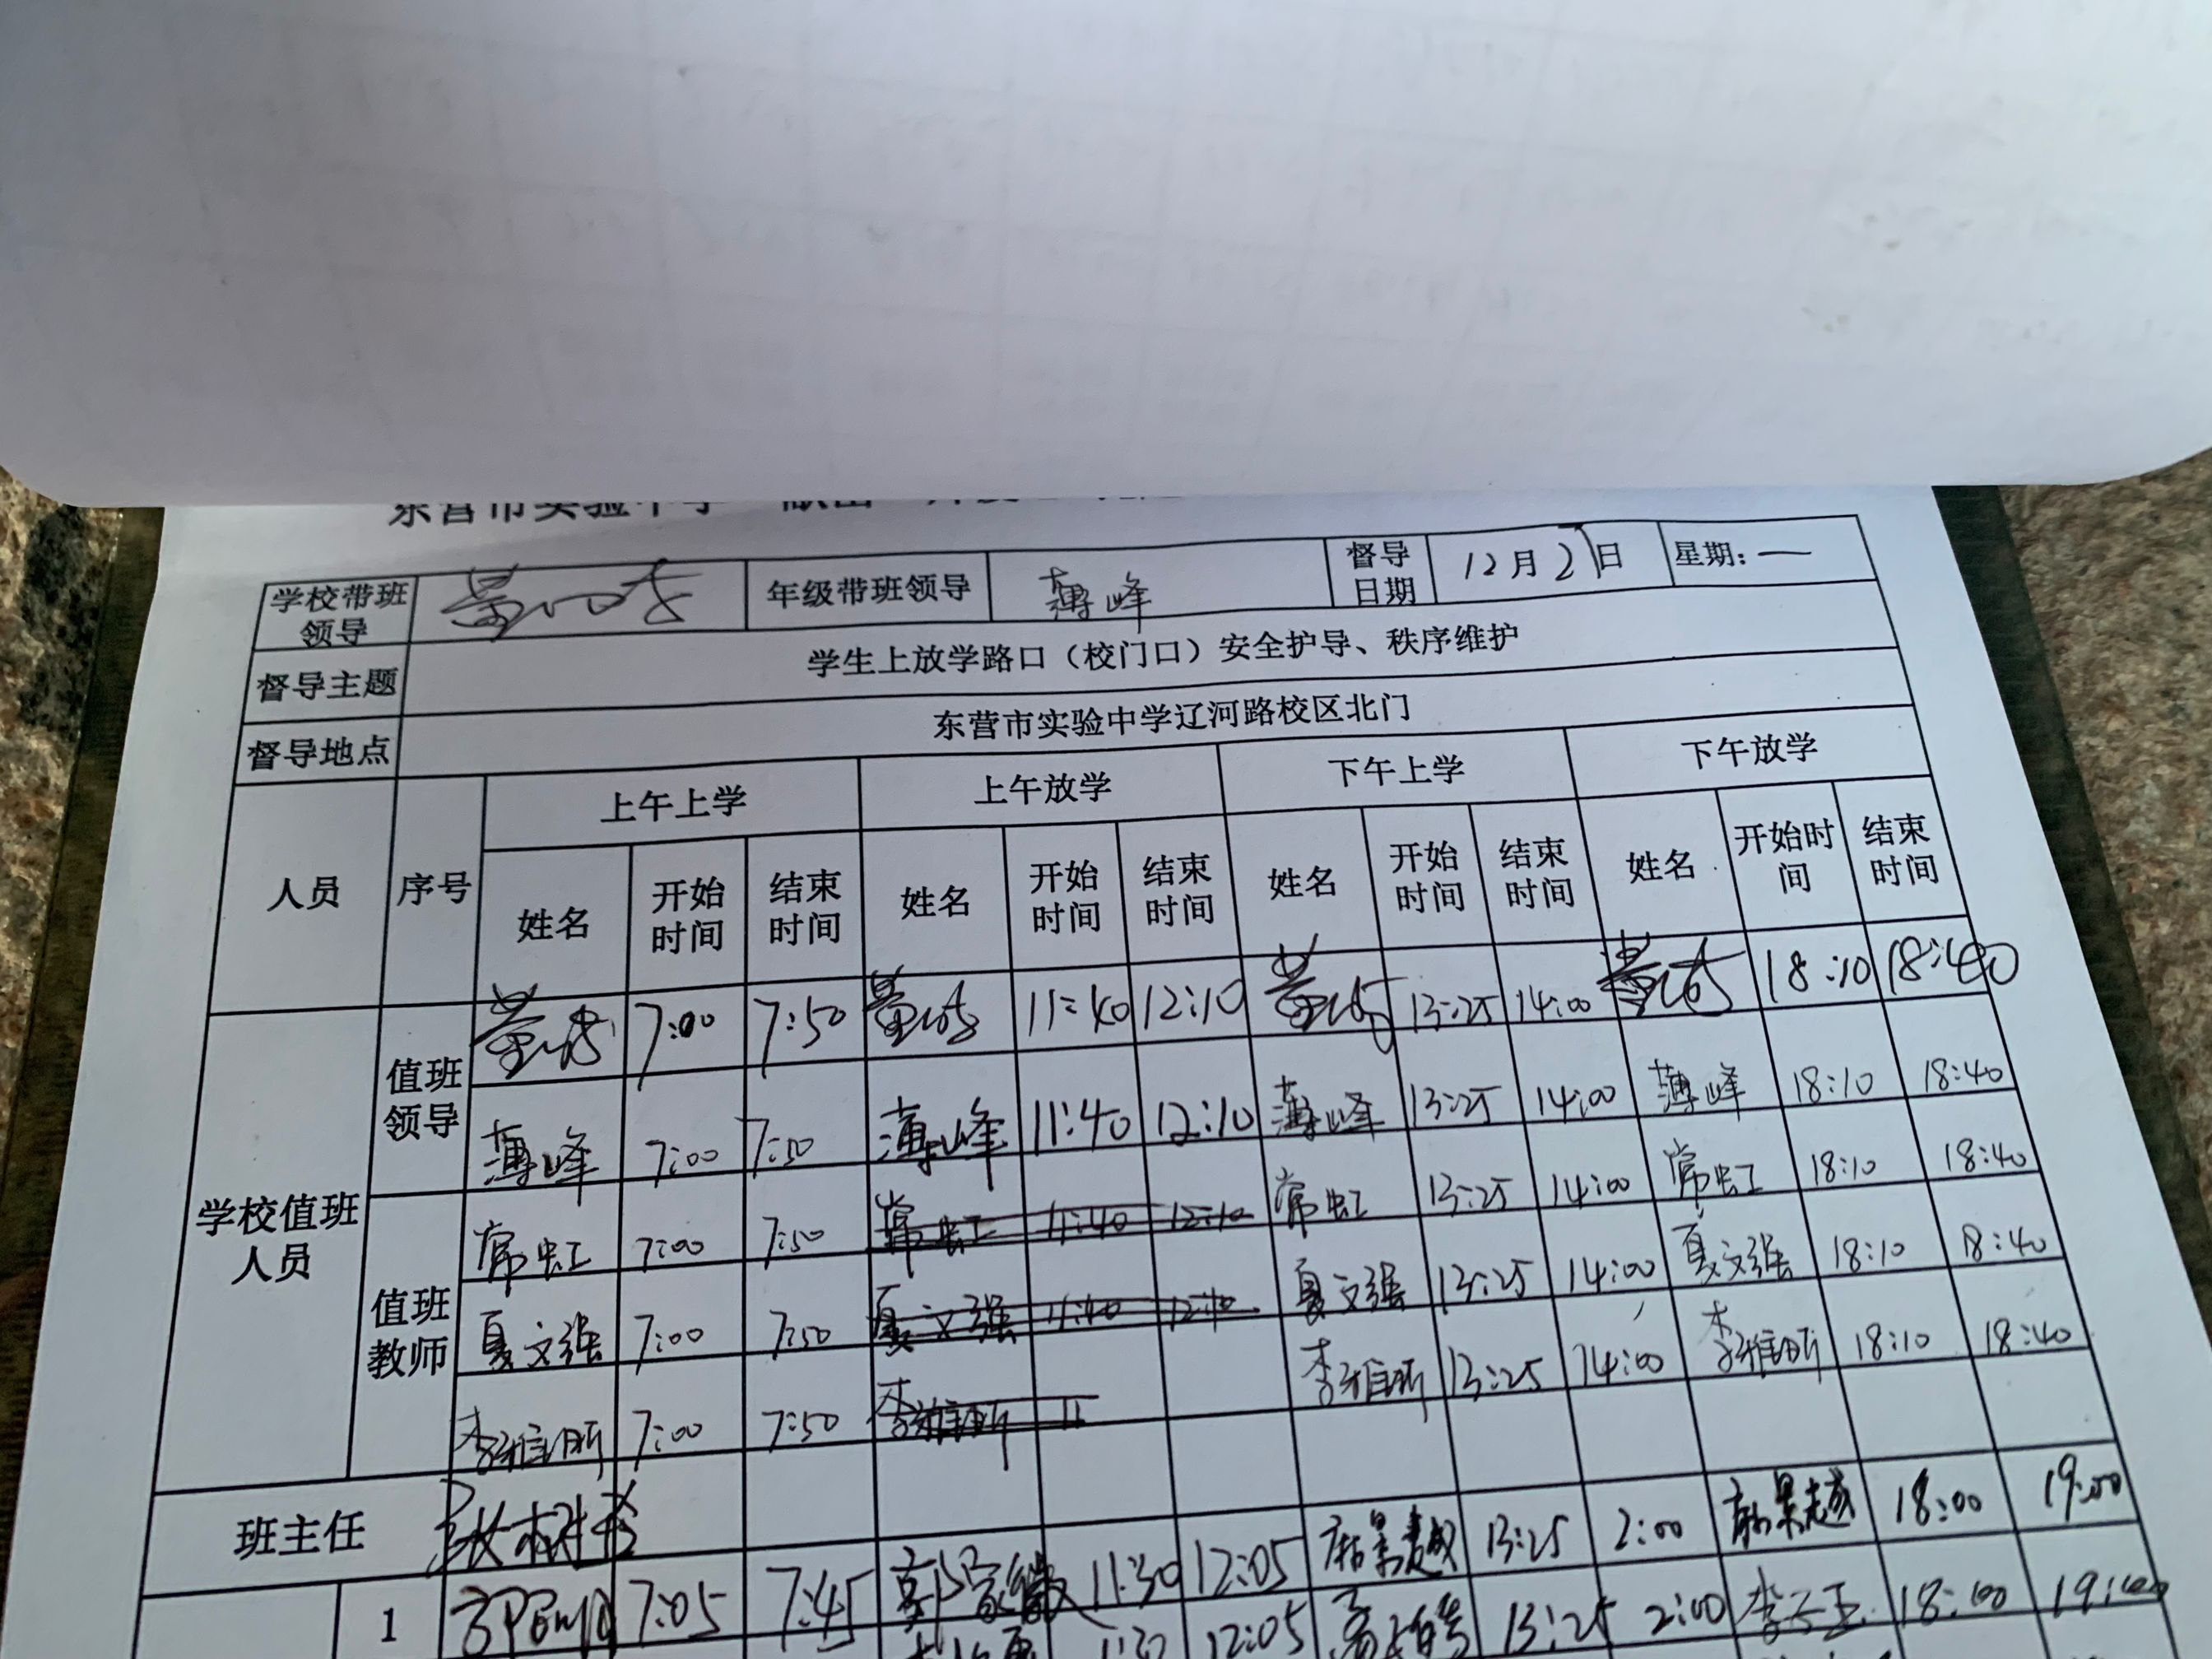 东营市实验中学
学校带班领导 年级带班领导 薄峰 督导日期 12月2日 星期:一
督导主题 学生上放学路口（校门口）安全护导、秩序维护
督导地点 东营市实验中学辽河路校区北门
人员 序号 上午上学 上午放学 下午上学 下午放学
姓名 开始时间 结束时间 姓名 开始时间 结束时间 姓名 开始时间 结束时间 姓名 开始时间 结束时间
学校值班人员 值班领导 7:00 7:50 11:40 12:10 13:25 14:00 18:10 18:40
薄峰 7:00 7:50 薄峰 11:40 12:10 薄峰 13:25 14:00 薄峰 18:10 18:40
值班教师 常虹 7:00 7:50 常虹 11:40 12:10 常虹 13:25 14:00 常虹 18:10 18:40
夏文强 7:00 7:50 夏文强 11:40 12:10 夏文强 13:25 14:00 夏文强 18:10 18:40
李雅昕 7:00 7:50 李雅昕 李雅昕 13:25 14:00 李雅昕 18:10 18:40
班主任
1 7:05 7:45 11:30 12:05 13:25 2:00 18:00 19:00
12:05 13:25 2:00 李子玉 18:00 19:00